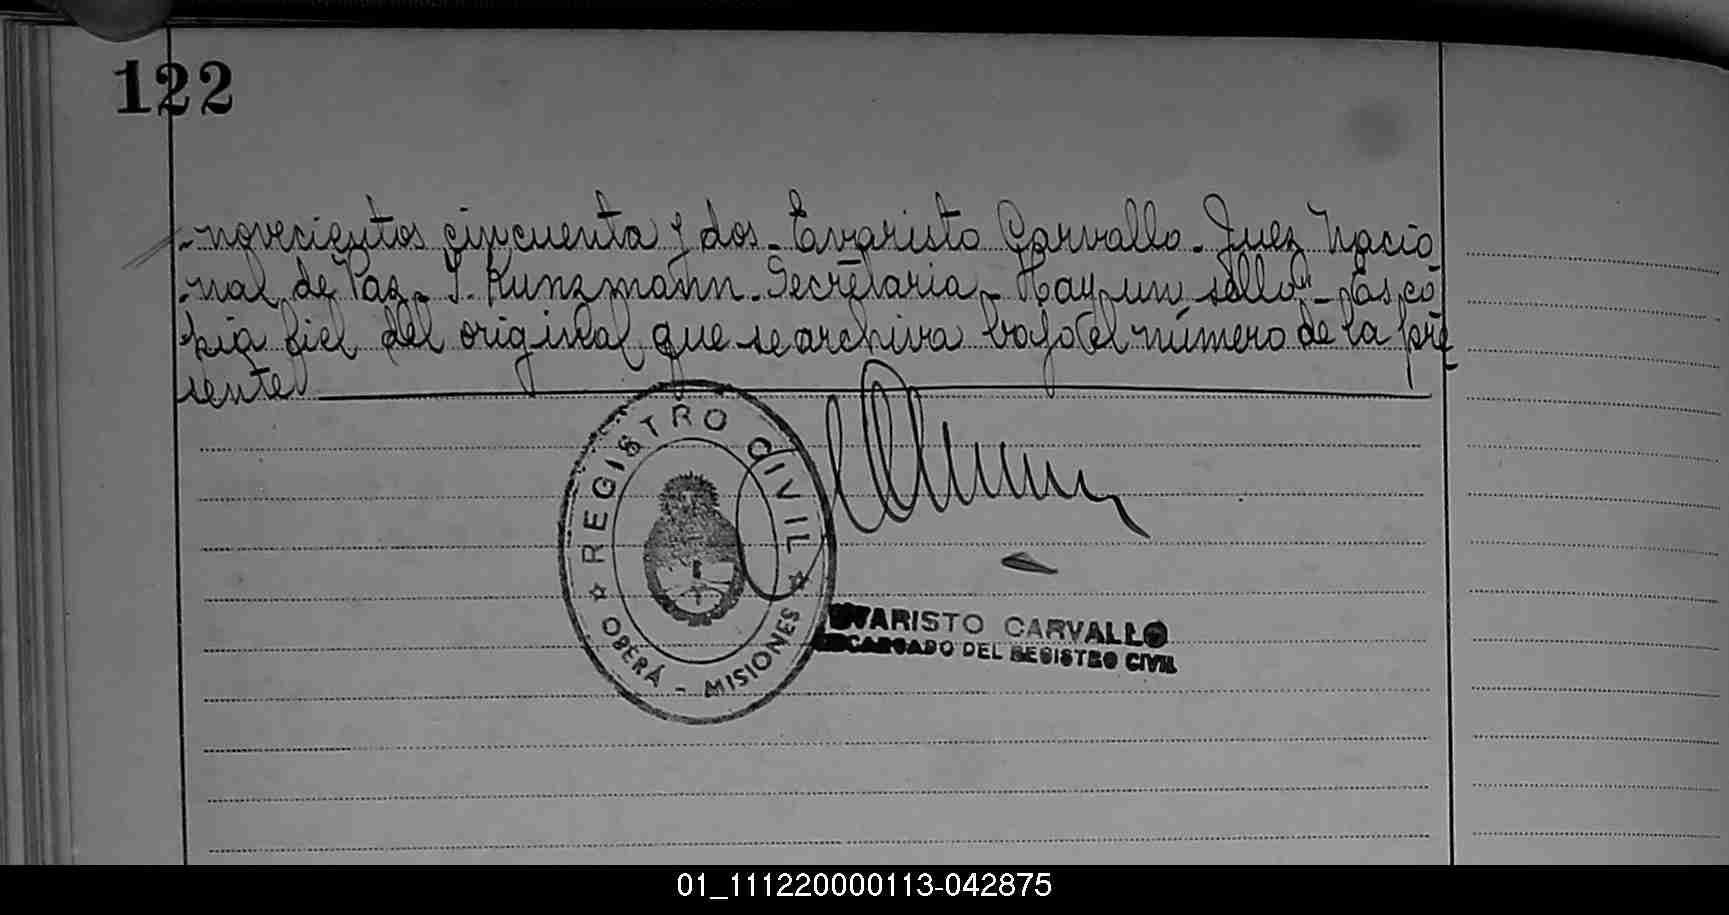 122
-novecientos cincuenta y dos.- Evaristo Carvallo.- Juez Nacio
-nal de Paz.- I. Kunzmann.- Secretaria.- Hay un sello".- Es có
pia fiel del original que se archiva bajo el número de la pre
sente
REGISTRO CIVIL
OBERÁ - MISIONES
EVARISTO CARVALLO
ENCARGADO DEL REGISTRO CIVIL
01_111220000113-042875